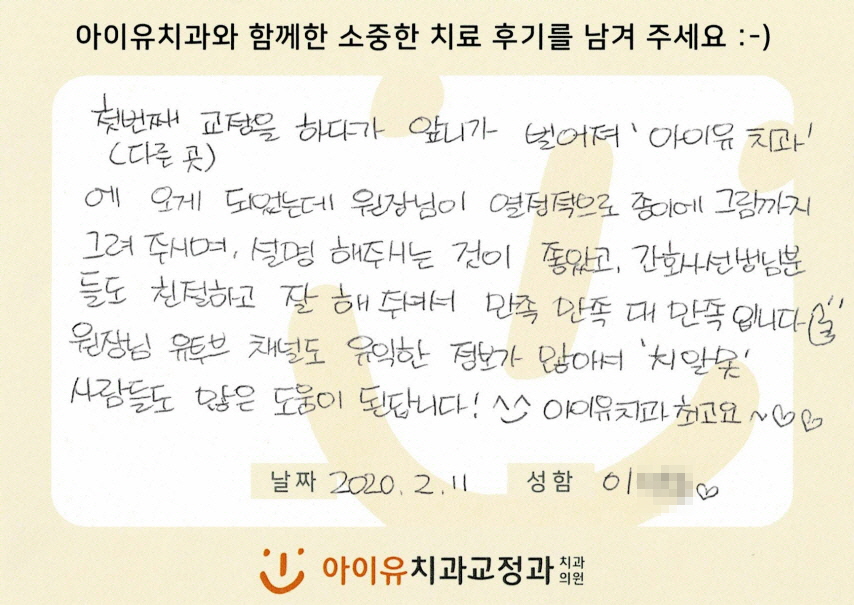 아이유치과와 함께한 소중한 치료 후기를 남겨 주세요 :-)
첫번째 교정을 하다가 앞니가 벌어져 '아이유 치과'
(다른 곳)
에 오게 되었는데 원장님이 열정적으로 종이에 그림까지
그려 주시며, 설명 해주시는 것이 좋았고, 간호사선생님분
들도 친절하고 잘 해 주셔서 만족 만족 대 만족입니다
원장님 유투브 채널도 유익한 정보가 많아서 '치알못'
사람들도 많은 도움이 된답니다! ^^ 아이유치과 최고요 ~♡♡
날짜 2020. 2. 11 성함 이 ♡
아이유치과교정과 치과의원